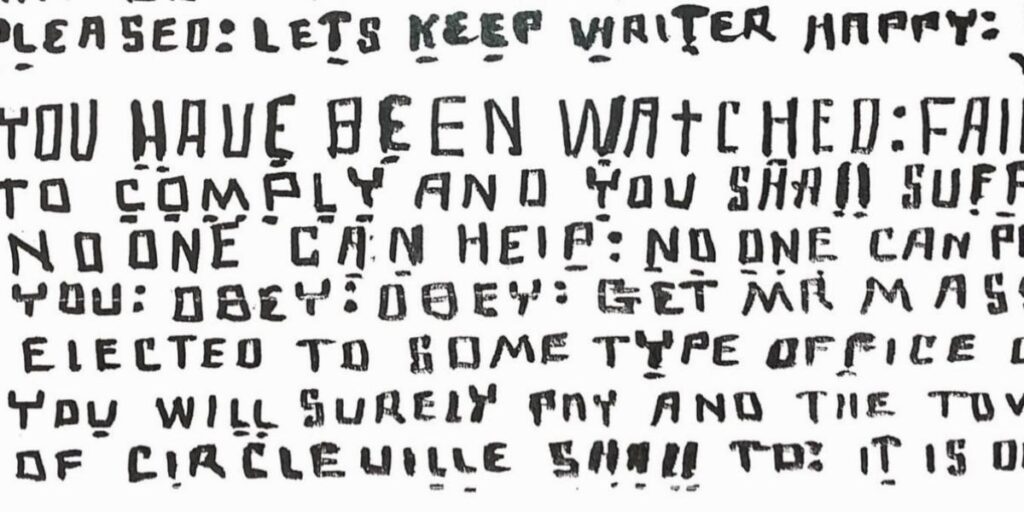 PLEASED: LETS KEEP WRITER HAPPY:
YOU HAVE BEEN WATCHED: FAI
TO COMPLY AND YOU SHALL SUFF
NO ONE CAN HELP: NO ONE CAN
YOU: OBEY: OBEY: GET MR MASS
ELECTED TO SOME TYPE OFFICE
YOU WILL SURELY PAY AND THE TOW
OF CIRCLEVILLE SHALL TO: IT IS